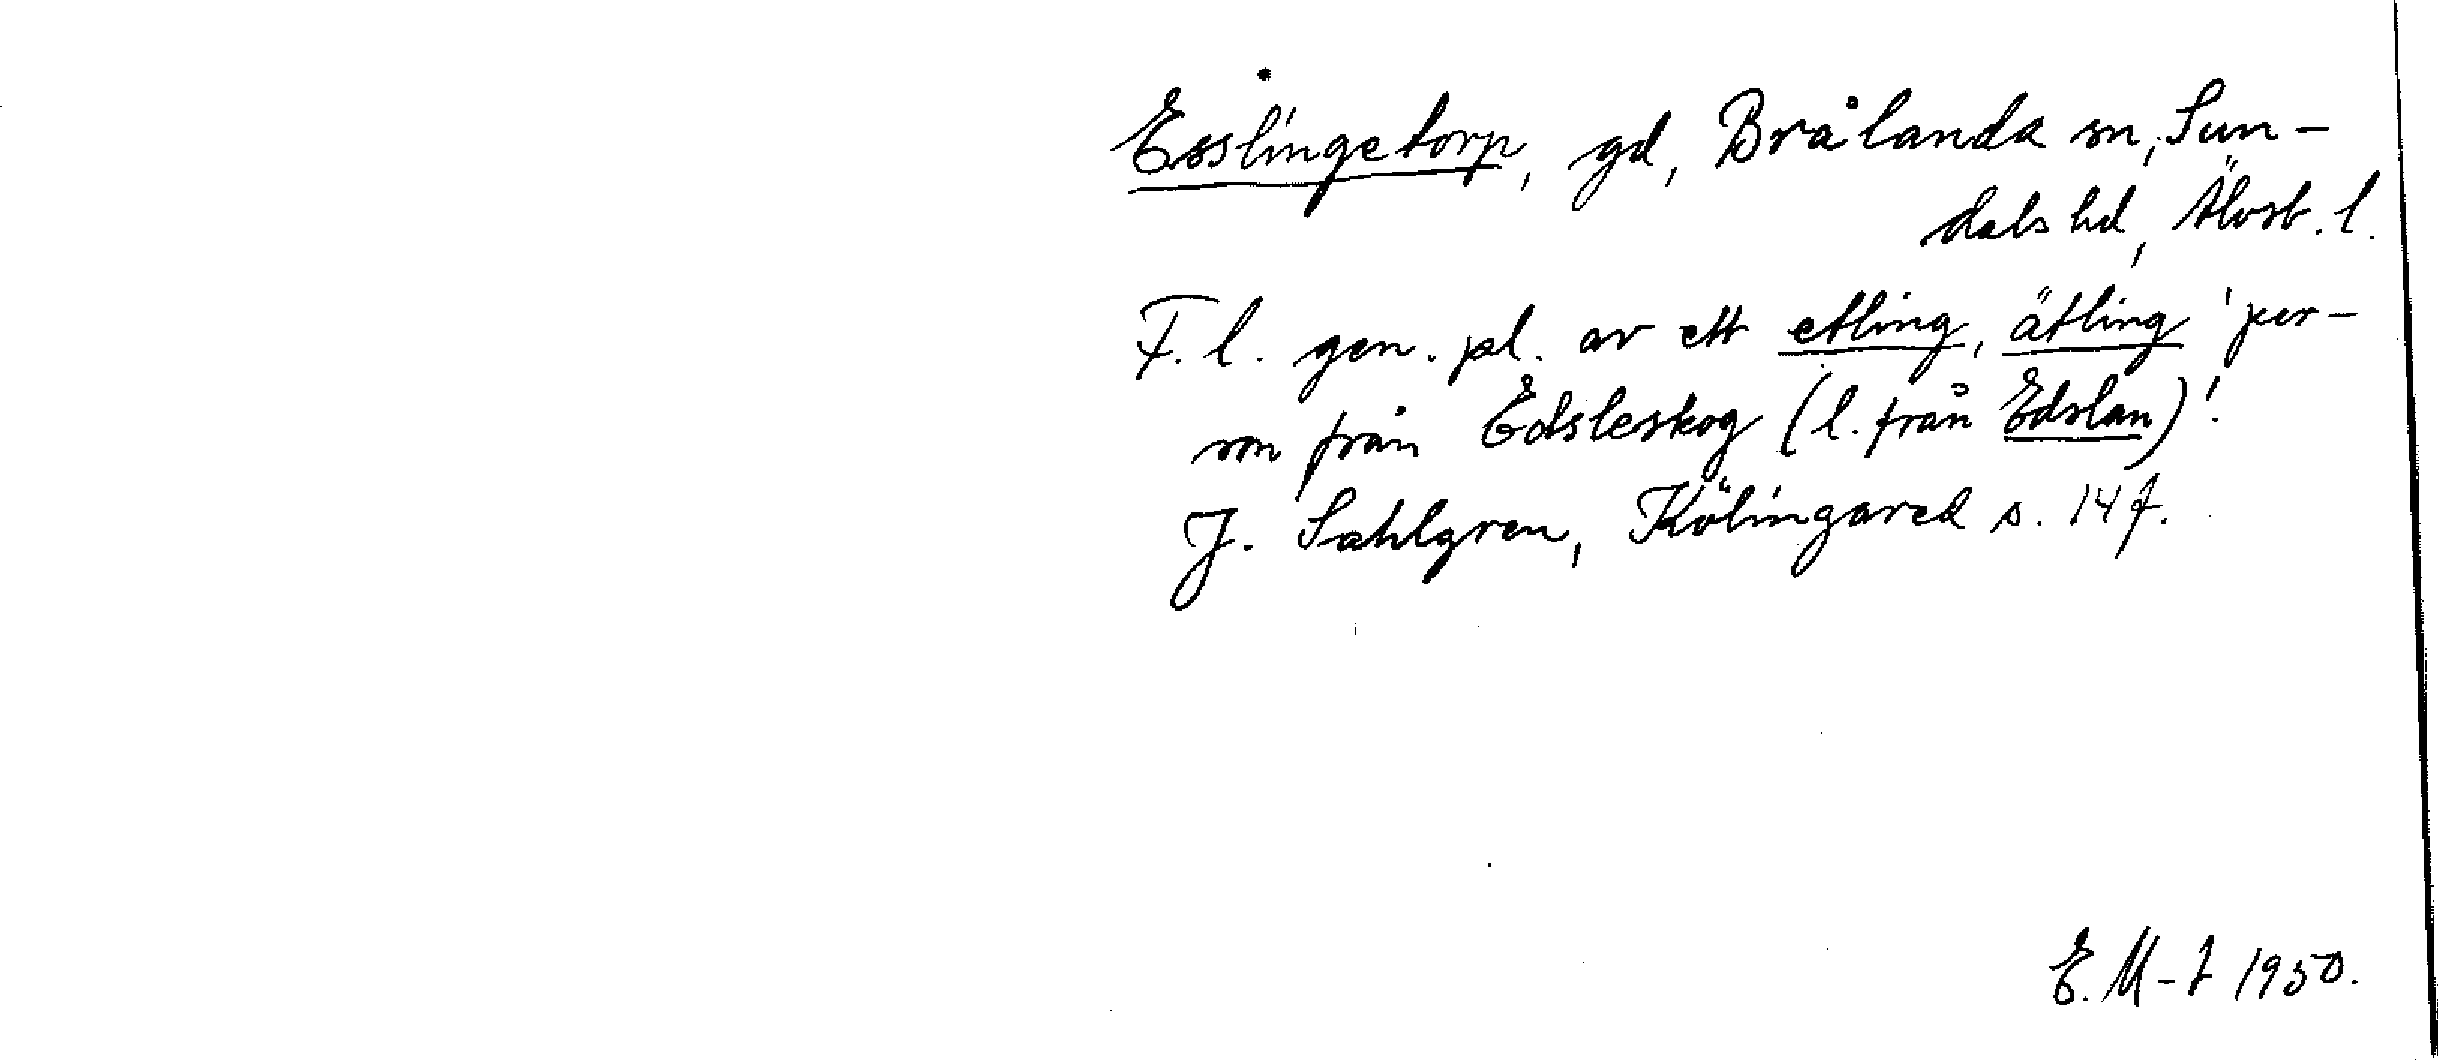 Esslingetorp, gd, Brålanda sn, Sun-
dals hd, Älvsb. l.
F. l. gen. pl. av ett etling, ätling 'per-
son från Edsleskog (l. från Edslan)'.
J. Sahlgren, Kölingared s. 14 f.
E. M-t 1950.